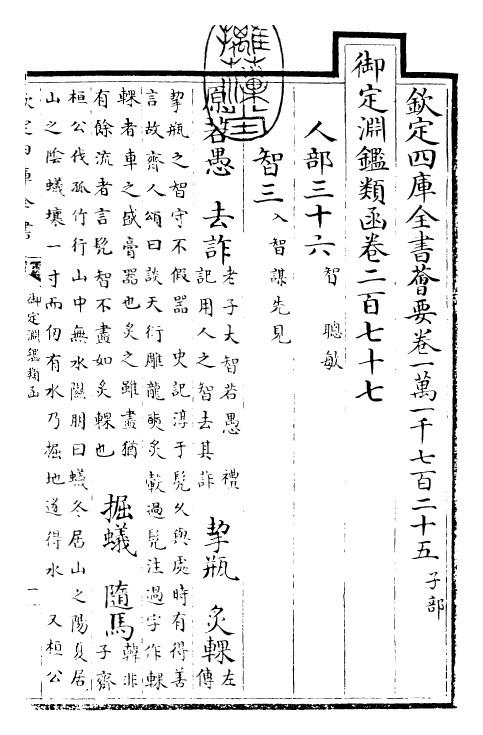 欽定四庫全書薈要卷一萬一千七百二十五 子部
御定淵鑑類函卷二百七十七
人部三十六 智 聰敏
智三 入智謀先見
原若愚 去詐 老子大智若愚 禮
記用人之智去其詐 挈瓶 炙輠 左
傳
挈瓶之智守不假器 史記淳于髡久與處時有得善
言故齊人頌曰談天衍雕龍奭炙轂過髡注過字作輠
輠者車之盛膏器也炙之雖盡猶
有餘流者言髡智不盡如炙輠也 掘蟻 隨馬 韓非
子齊
桓公伐孤竹行山中無水隰朋曰蟻冬居山之陽夏居
山之陰蟻壤一寸而仞有水乃掘地遂得水 又桓公
欽定四庫全書
御定淵鑑類函
一